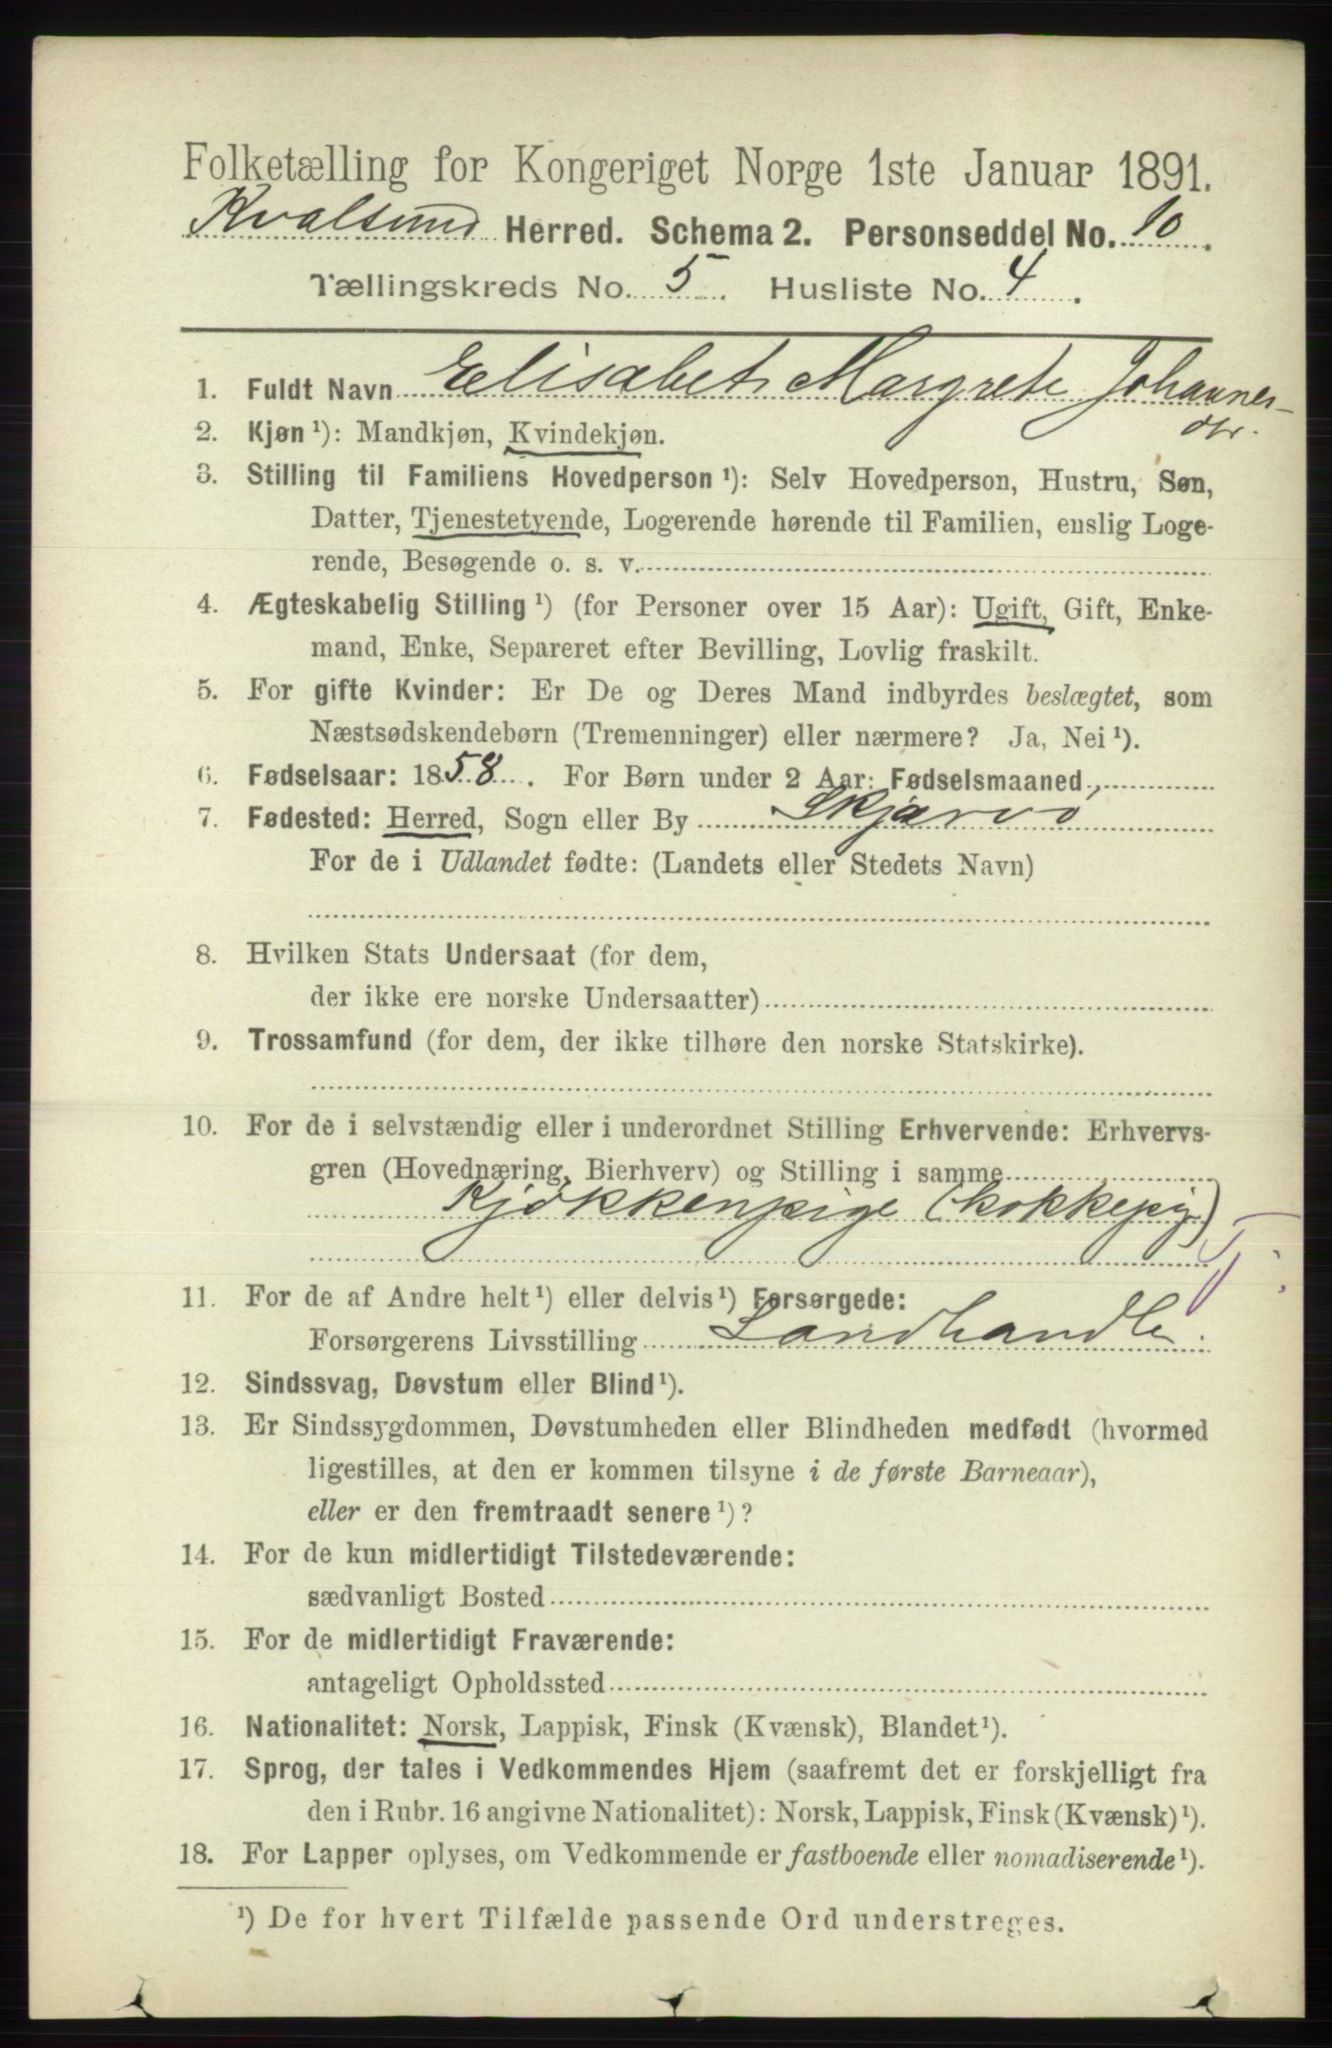 Folketælling for Kongeriget Norge 1ste Januar 1891.
Kvalsund Herred. Schema 2. Personseddel No. 10.
Tællingskreds No. 5. Husliste No. 4.
1. Fuldt Navn Elisabet Margrete Johannes-
dtr.
2. Kjøn ¹): Mandkjøn, Kvindekjøn.
3. Stilling til Familiens Hovedperson ¹): Selv Hovedperson, Hustru, Søn,
Datter, Tjenestetyende, Logerende hørende til Familien, enslig Loge-
rende, Besøgende o. s. v.
4. Ægteskabelig Stilling ¹) (for Personer over 15 Aar): Ugift, Gift, Enke-
mand, Enke, Separeret efter Bevilling, Lovlig fraskilt.
5. For gifte Kvinder: Er De og Deres Mand indbyrdes beslægtet, som
Næstsødskendebørn (Tremenninger) eller nærmere? Ja, Nei ¹).
6. Fødselsaar: 1858. For Børn under 2 Aar: Fødselsmaaned
7. Fødested: Herred, Sogn eller By Skjærvø
For de i Udlandet fødte: (Landets eller Stedets Navn)
8. Hvilken Stats Undersaat (for dem,
der ikke ere norske Undersaatter)
9. Trossamfund (for dem, der ikke tilhøre den norske Statskirke).
10. For de i selvstændig eller i underordnet Stilling Erhvervende: Erhvervs-
gren (Hovednæring, Bierhverv) og Stilling i samme
Kjøkkenpige (kokkepig)
11. For de af Andre helt ¹) eller delvis ¹) Forsørgede:
Forsørgerens Livsstilling Landhandle.
12. Sindssvag, Døvstum eller Blind ¹).
13. Er Sindssygdommen, Døvstumheden eller Blindheden medfødt (hvormed
ligestilles, at den er kommen tilsyne i de første Barneaar),
eller er den fremtraadt senere ¹)?
14. For de kun midlertidigt Tilstedeværende:
sædvanligt Bosted
15. For de midlertidigt Fraværende:
antageligt Opholdssted
16. Nationalitet: Norsk, Lappisk, Finsk (Kvænsk), Blandet ¹).
17. Sprog, der tales i Vedkommendes Hjem (saafremt det er forskjelligt fra
den i Rubr. 16 angivne Nationalitet): Norsk, Lappisk, Finsk (Kvænsk) ¹).
18. For Lapper oplyses, om Vedkommende er fastboende eller nomadiserende ¹).
¹) De for hvert Tilfælde passende Ord understreges.